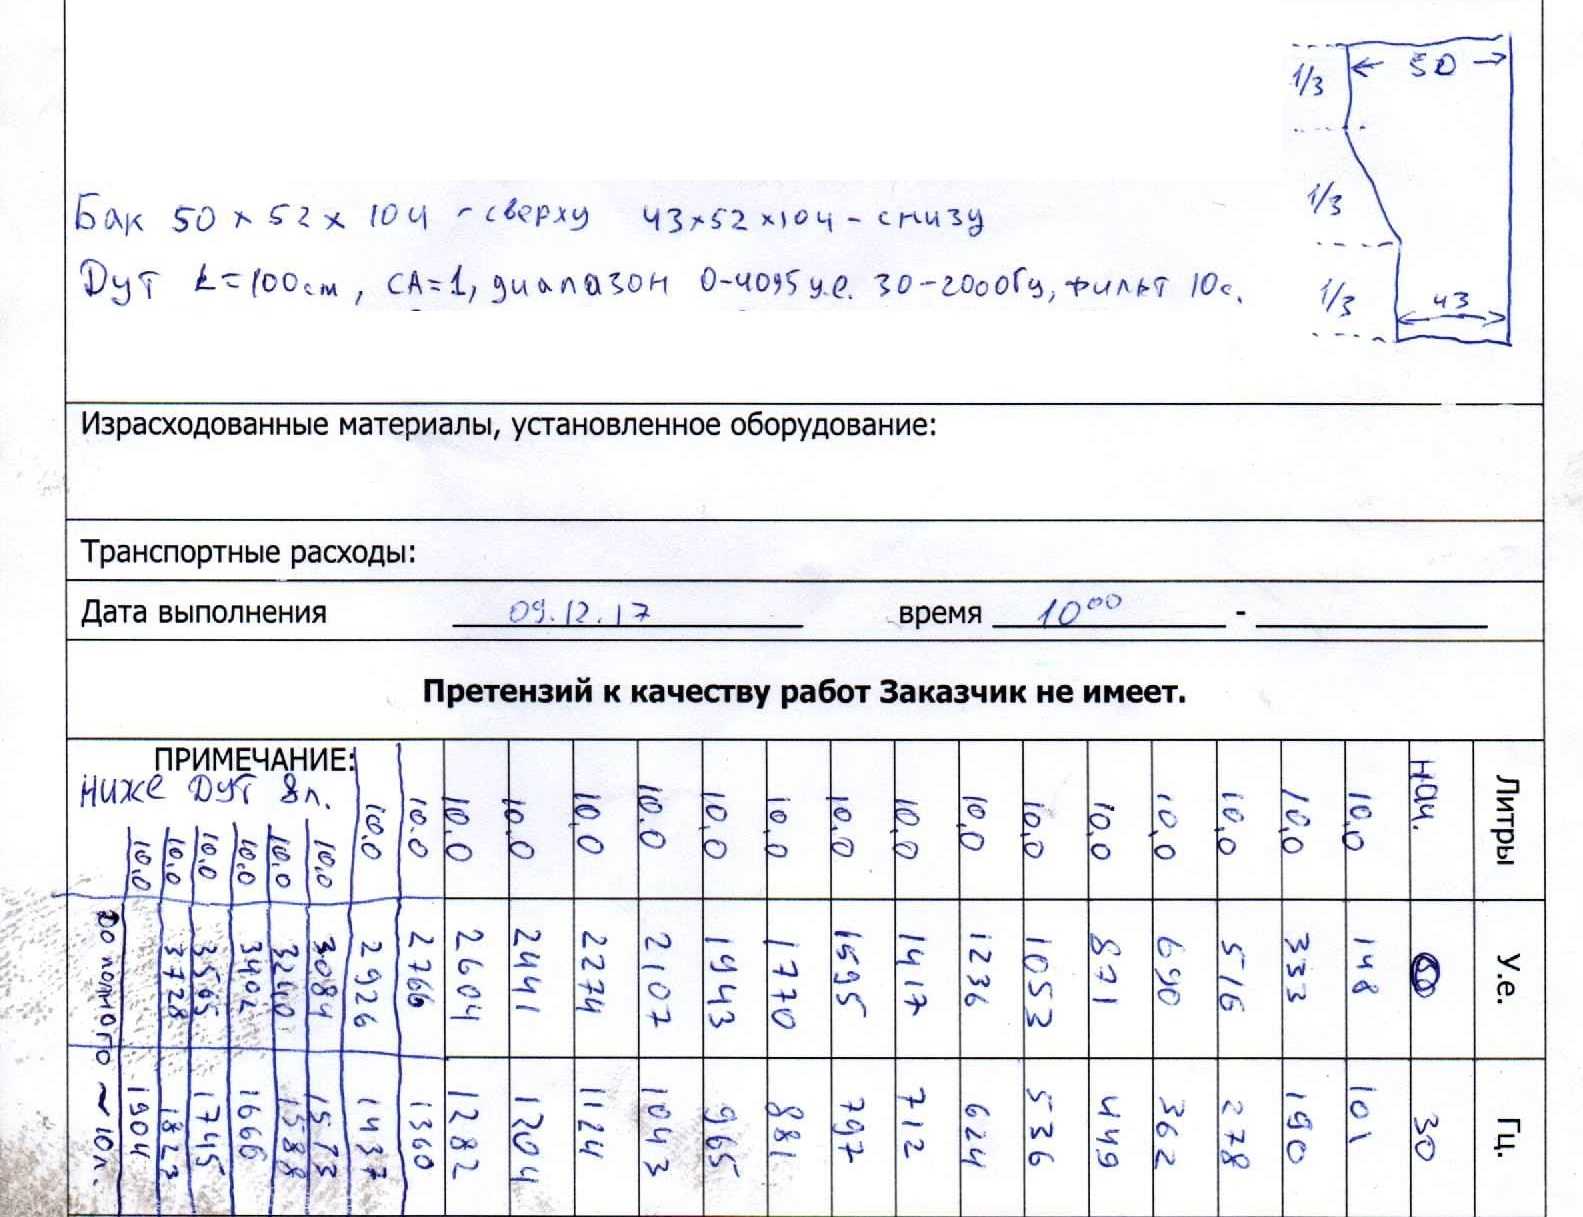 1/3
← 50 →
1/3
Бак 50 × 52 × 104 - сверху 43×52×104 - снизу
Дут L=100см, СА=1, диапазон 0-4095 у.е. 30-2000Гц, фильт 10с.
1/3
43
Израсходованные материалы, установленное оборудование:
Транспортные расходы:
Дата выполнения 09.12.17 время 10⁰⁰ -
Претензий к качеству работ Заказчик не имеет.
ПРИМЕЧАНИЕ:
Ниже ДУТ 8л.
Литры У.е. Гц.
нач. 30
10,0 148 101
10,0 333 190
10,0 516 278
10,0 690 362
10,0 871 449
10,0 1053 536
10,0 1236 624
10,0 1417 712
10,0 1595 797
10,0 1770 881
10,0 1943 965
10,0 2107 1043
10,0 2274 1124
10,0 2441 1204
10,0 2604 1282
10.0 2766 1360
10.0 2926 1437
10,0 3084 1513
10,0 3240 1588
10,0 3402 1666
10,0 3565 1745
10,0 3728 1823
10,0 1904
До полного ~ 10л.